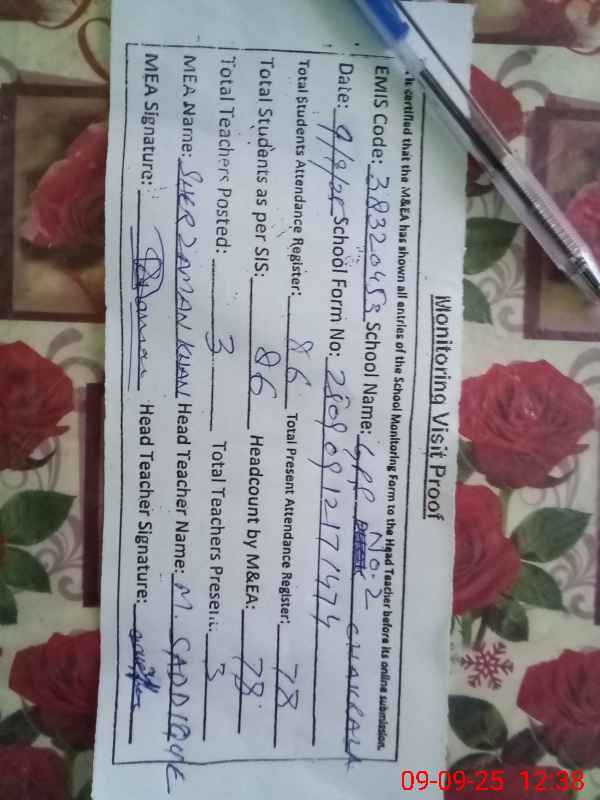 Monitoring Visit Proof
is certified that the M&EA has shown all entries of the School Monitoring Form to the Head Teacher before its online submission.
EMIS Code: 38320453 School Name: GPP No: 2 CHAKRALA
Date: 9/9/25 School Form No: 28090912171474
Total Students Attendance Register: 86 Total Present Attendance Register: 78
Total Students as per SIS: 86 Headcount by M&EA: 78
Total Teachers Posted: 3 Total Teachers Present: 3
MEA Name: SHER ZAMAN KHAN Head Teacher Name: M. SADDIQUE
MEA Signature: Head Teacher Signature:
09-09-25 12:38